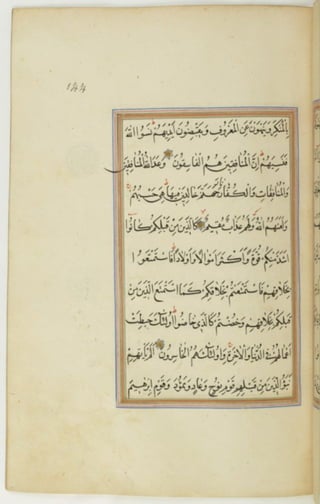 بِالْمُنْكَرِ وَيَنْهَوْنَ عَنِ الْمَعْرُوفِ وَيَقْبِضُونَ أَيْدِيَهُمْ نَسُوا اللَّهَ
فَنَسِيَهُمْ إِنَّ الْمُنَافِقِينَ هُمُ الْفَاسِقُونَ وَعَدَ اللَّهُ الْمُنَافِقِينَ
وَالْمُنَافِقَاتِ وَالْكُفَّارَ نَارَ جَهَنَّمَ خَالِدِينَ فِيهَا هِيَ حَسْبُهُمْ
وَلَعَنَهُمُ اللَّهُ وَلَهُمْ عَذَابٌ مُقِيمٌ كَالَّذِينَ مِنْ قَبْلِكُمْ كَانُوا
اَشَدَّ مِنْكُمْ قُوَّةً وَاَكْثَرَ اَمْوَالًا وَاَوْلَادًا فَاسْتَمْتَعُوا
بِخَلَاقِهِمْ فَاسْتَمْتَعْتُمْ بِخَلَاقِكُمْ كَمَا اسْتَمْتَعَ الَّذِينَ مِنْ
قَبْلِكُمْ بِخَلَاقِهِمْ وَخُضْتُمْ كَالَّذِي خَاضُوا اُولَئِكَ حَبِطَتْ
اَعْمَالُهُمْ فِي الدُّنْيَا وَالْآخِرَةِ وَاُولَئِكَ هُمُ الْخَاسِرُونَ اَلَمْ يَأْتِهِمْ
نَبَأُ الَّذِينَ مِنْ قَبْلِهِمْ قَوْمِ نُوحٍ وَعَادٍ وَثَمُودَ وَقَوْمِ اِبْرَهِيمَ